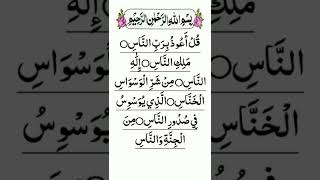 بِسْمِ اللهِ الرَّحْمٰنِ الرَّحِيْمِ
قُلْ أَعُوذُ بِرَبِّ النَّاسِ ○
مَلِكِ النَّاسِ ○ إِلَٰهِ
النَّاسِ ○ مِنْ شَرِّ الْوَسْوَاسِ
الْخَنَّاسِ ○ الَّذِي يُوَسْوِسُ
فِي صُدُورِ النَّاسِ ○ مِنَ
الْجِنَّةِ وَالنَّاسِ